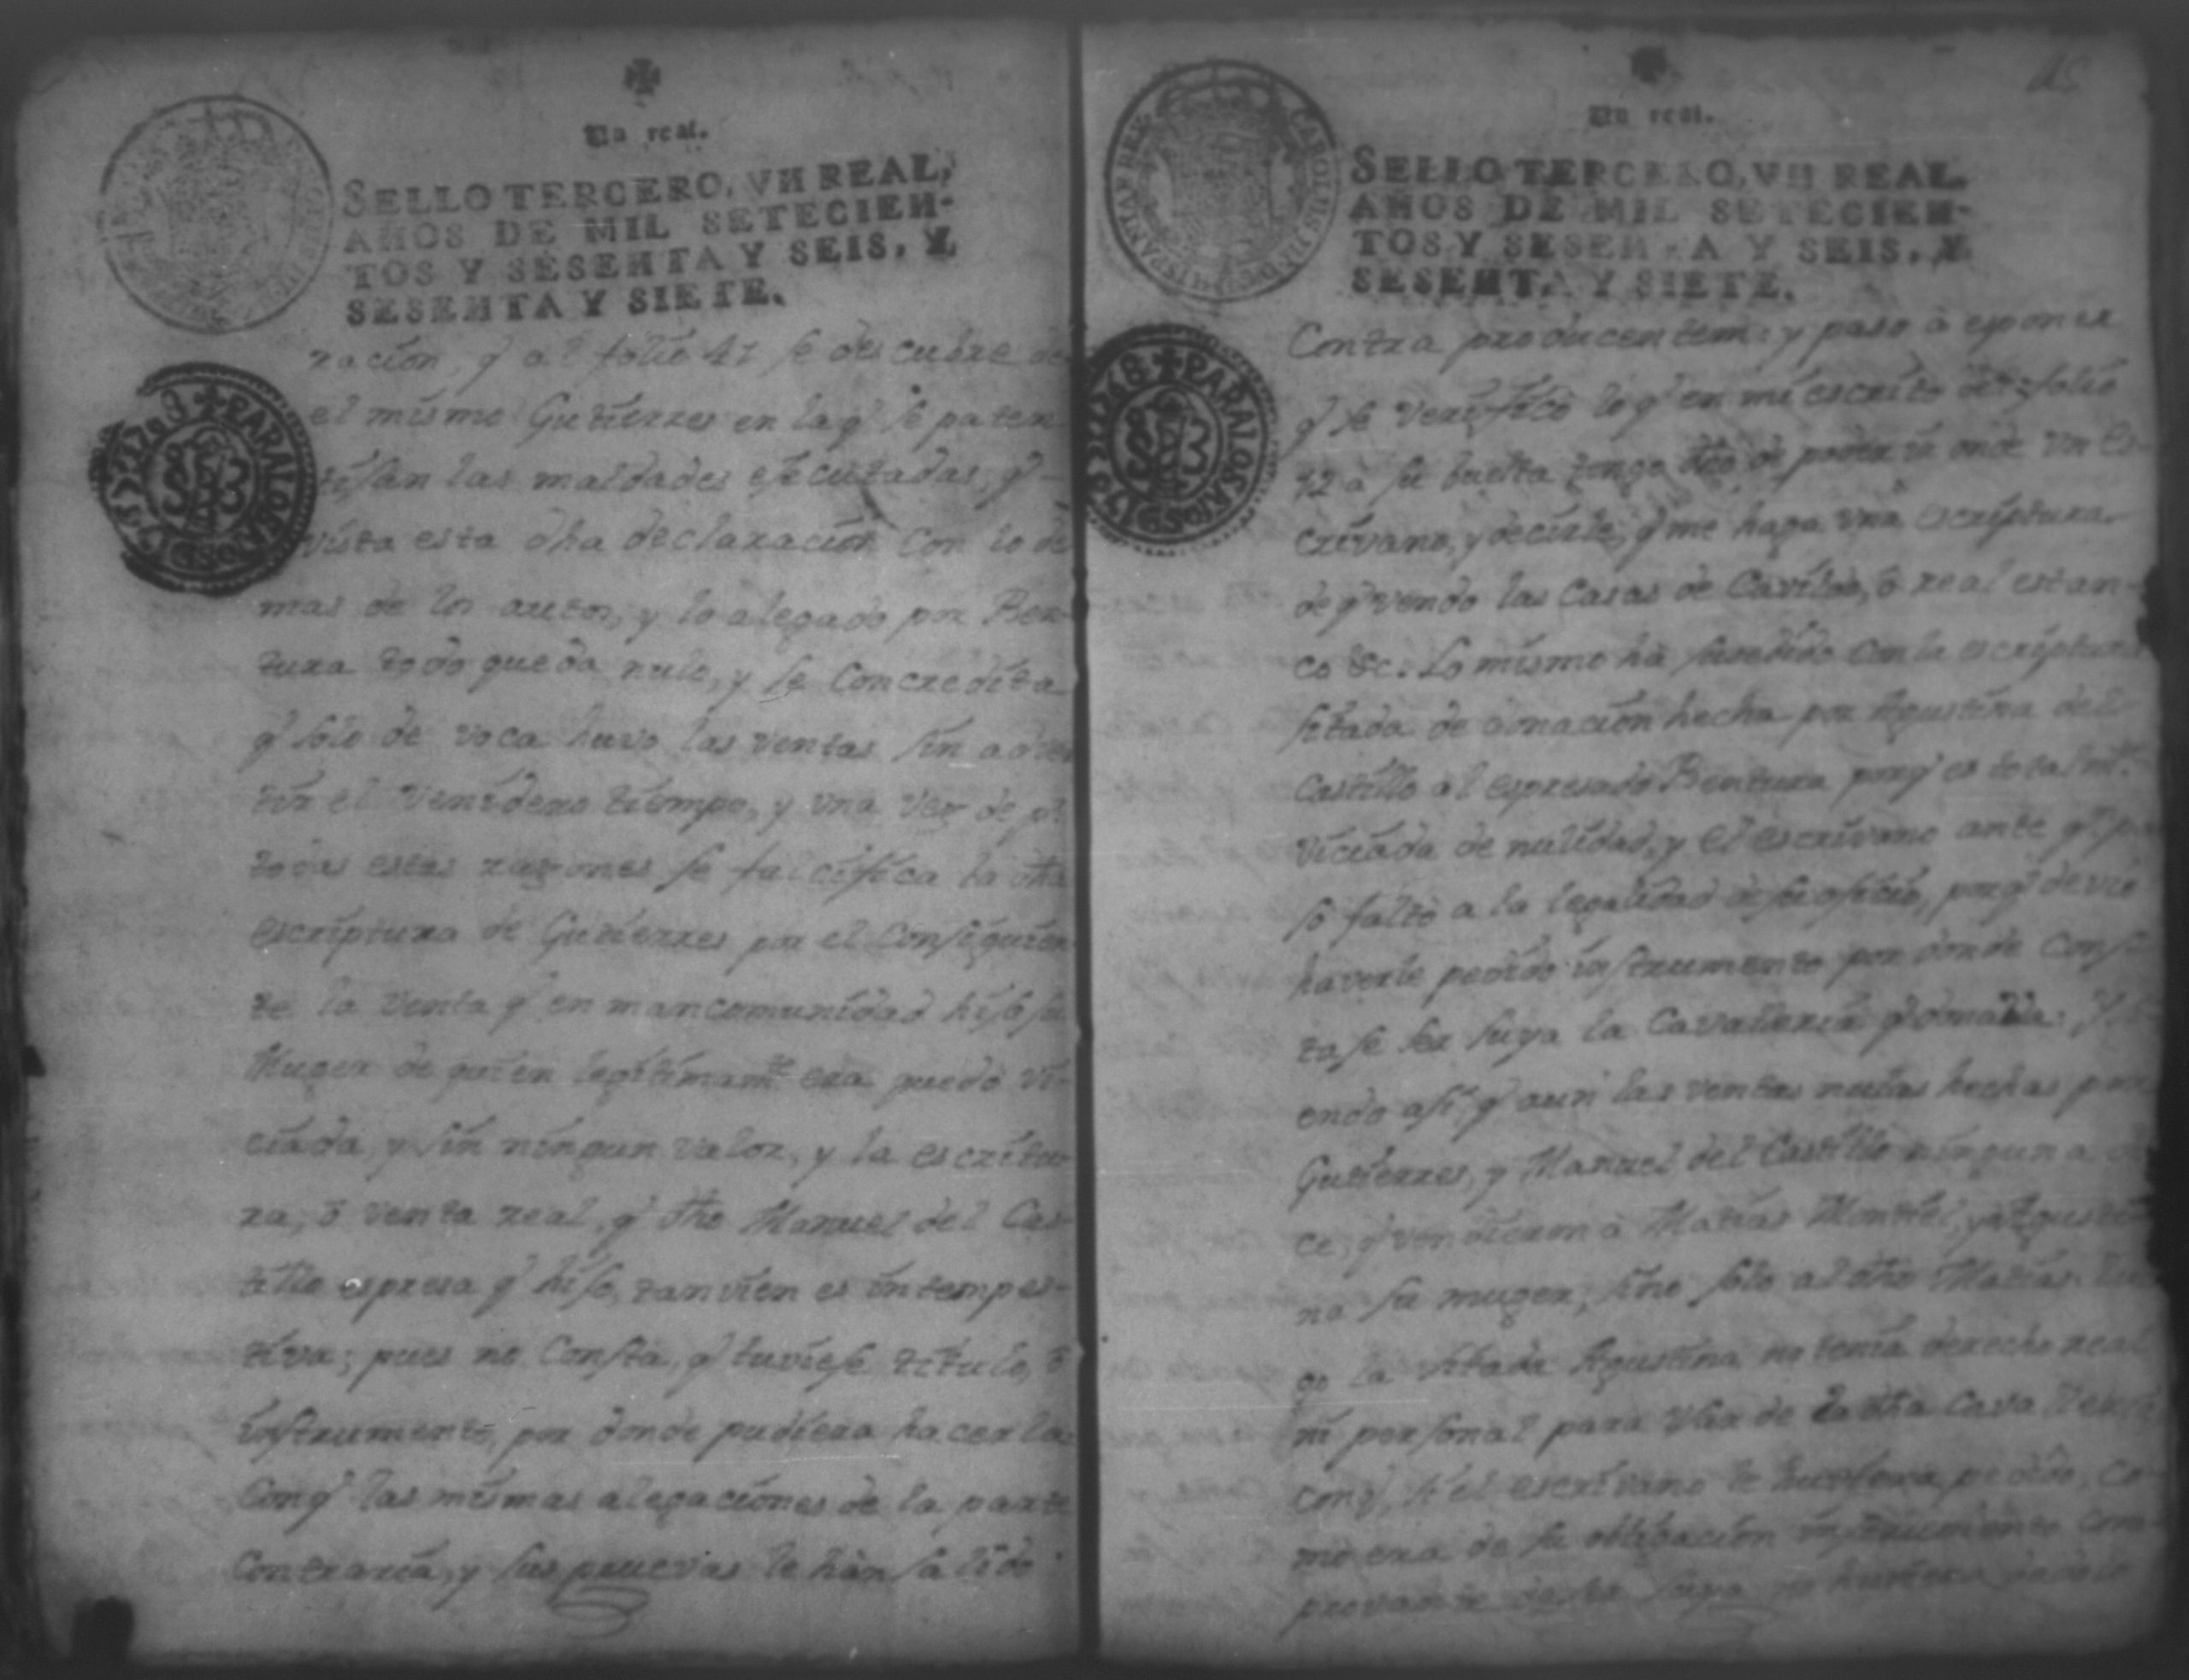 Un real.
SELLO TERCERO, VN REAL,
AÑOS DE MIL SETECIEN-
TOS Y SESENTA Y SEIS, Y
SESENTA Y SIETE.
racion, q̃ al folio 41 se descubre de
el mismo Gutierres en la q̃ se paten
tisan las maldades efecutadas, q̃
vista esta dha declaracion con lo de
mas de los autos, y lo alegado por Ben-
tura todo queda nulo, y se Concredita
q̃ solo de voca huvo las ventas sin adver
tir el Venidero tiempo, y una vez de pr
todas estas razones se falcifica la dha
escriptura de Gutierres por el Consiguien
te la Venta q̃ en mancomunidad hiso su
Muger de quien legitimamte. era quedo vi-
ciada, y sin ningun valor, y la escritu-
ra, ò venta real, q̃ dho Manuel del Cas-
tillo espresa q̃ hiso, tanvien es intempes-
tiva; pues no Consta, q̃ tuviese titulo, ò
instrumento, por donde pudiera hacerla.
Conq̃ las mismas alegaciones de la parte
Contraria, y sus pruevas le han salido
45
Un real.
SELLO TERCERO, VN REAL.
AÑOS DE MIL SETECIEN-
TOS Y SESENTA Y SEIS, Y
SESENTA Y SIETE.
CAROLUS III D G HISPANIAR REX
PARA LOS AÑOS DE 1768
Contra producentem: y paso à esponer
q̃ se verifico lo q̃ en mi escrito de folio
72 à su buelta tengo dho de poder ir onde un es-
crivano, y decirle, q̃ me haga una escriptura
de q̃ vendo las Casas de Cavildo, ò real estan-
co &c. Lo mismo ha susedido con la escriptura
sitada de donacion hecha por Agustina del
Castillo al espresado Bentura porq̃ es totalmte.
viciada de nulidad, y el escrivano ante qn. pa
so faltò a la legalidad de su oficio, porq̃ deviò
haverle pedido instrumento por donde Cons-
tase ser suya la Cavalleria q̃ donava: Y si-
endo asi, q̃ aun las ventas nulas hechas por
Gutierres, y Manuel del Castillo ninguna di
ce, q̃ vendieron à Matias Montiel, y à Agusti
na su muger, sino solo al dho Matias. Lue
go la sitada Agustina no tenia derecho real
ni personal para usar de la dha Cava lleria
conq̃, si el escrivano le huviera pedido, co-
mo era de su obligacion instrumento com
provante de ser suya no huviera